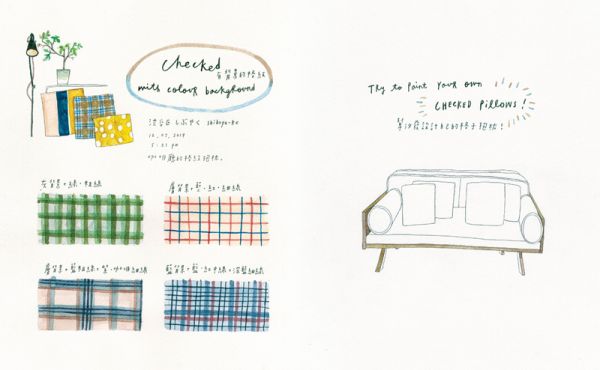 checked
有背景的格紋
with colour background
渋谷区 しぶやく shibuya-ku
12, 07, 2019
5:21 pm
灰背景+綠・粗線
膚背景+藍・紅・細線
膚背景+藍粗線+
藍背景+藍・紅中線+深藍細線
Try to paint your own
CHECKED PILLOWS!
幫沙發設計自己的格子抱枕!